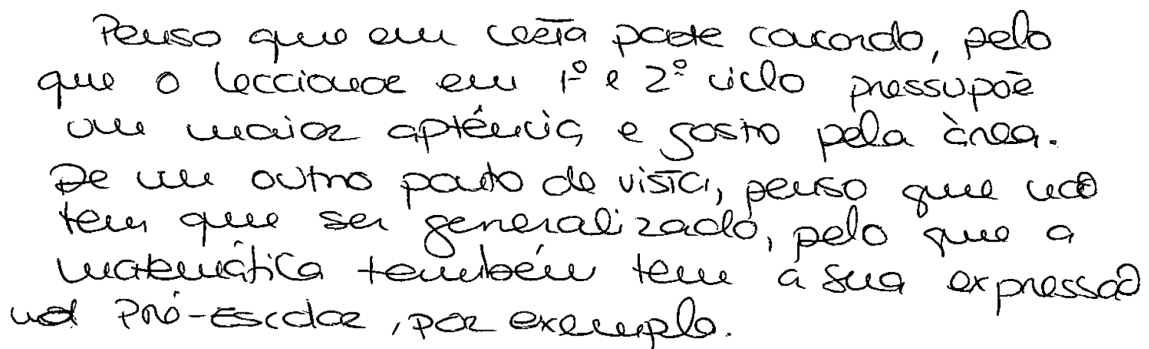 Penso que em certa parte concordo, pelo
que o leccionar em 1º e 2º ciclo pressupõe
um maior aptência e gosto pela àrea.
De um outro ponto de vista, penso que não
tem que ser generalizado, pelo que a
matemática também tem a sua expressão
no Pré-Escolar, por exemplo.